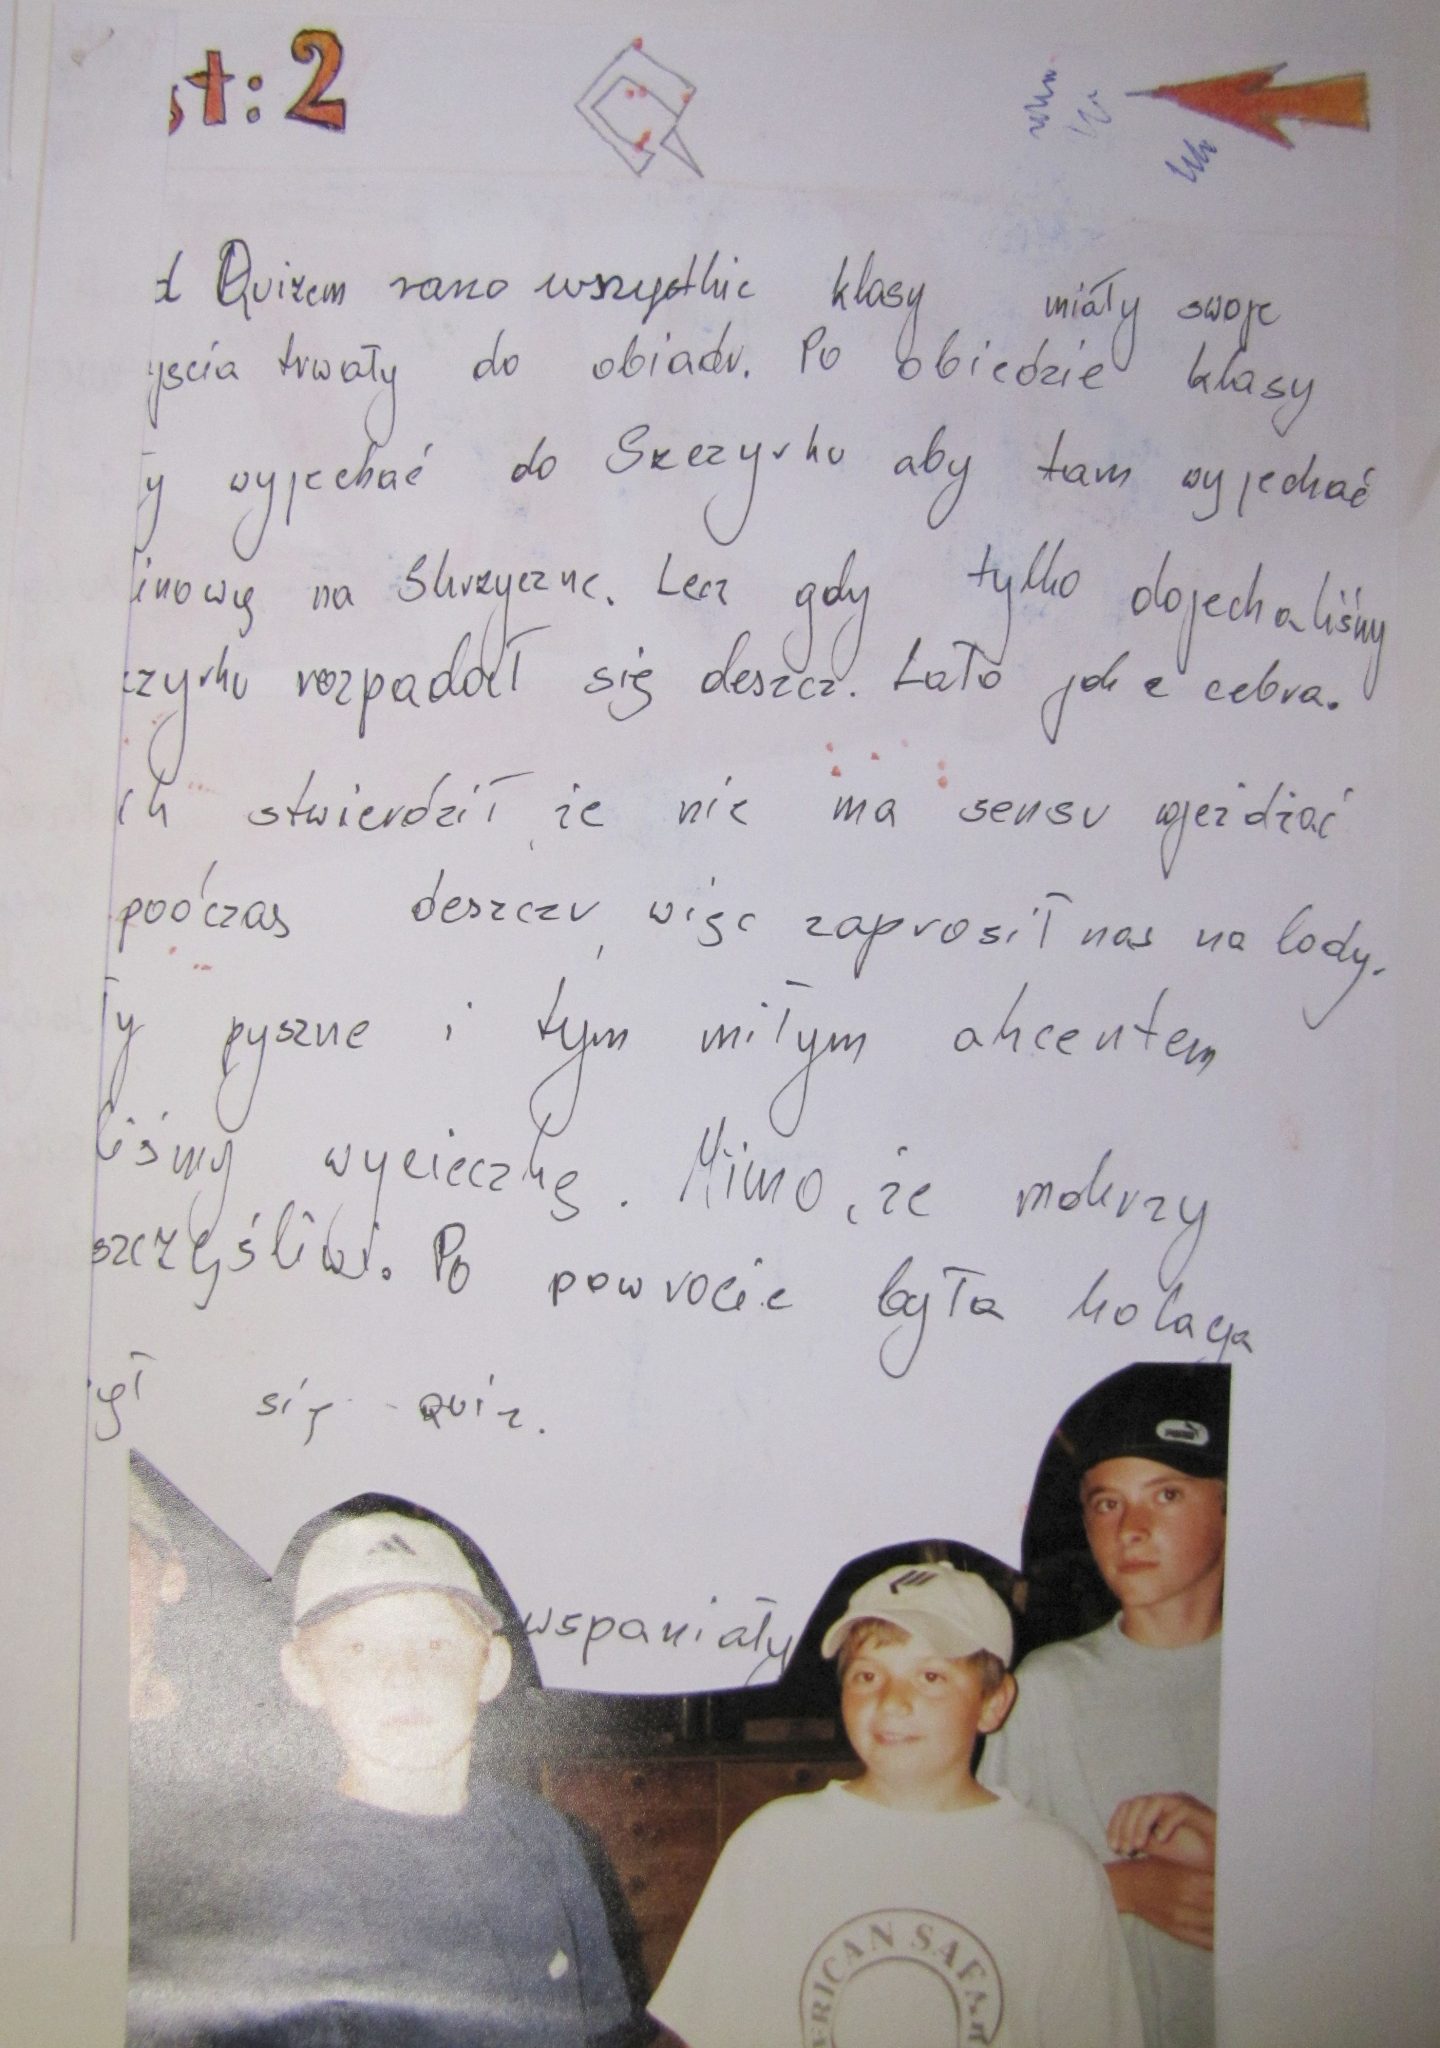 st: 2
d Quizem rano wszystkie klasy miały swoje
yscia trwały do obiadu. Po obiedzie klasy
y wyjechać do Szczyrku aby tam wyjechać
linową na Skrzyczne. Lecz gdy tylko dojechaliśmy
czyrku rozpadał się deszcz. Lało jak z cebra.
ch stwierdził, że nie ma sensu wjeżdżać
podczas deszczu, więc zaprosił nas na lody.
ły pyszne i tym miłym akcentem
liśmy wycieczkę. Mimo, że mokrzy
szczęśliwi. Po powrocie była kolacja
ął się quiz.
wspaniały
PUMA
ERICAN SAFAR